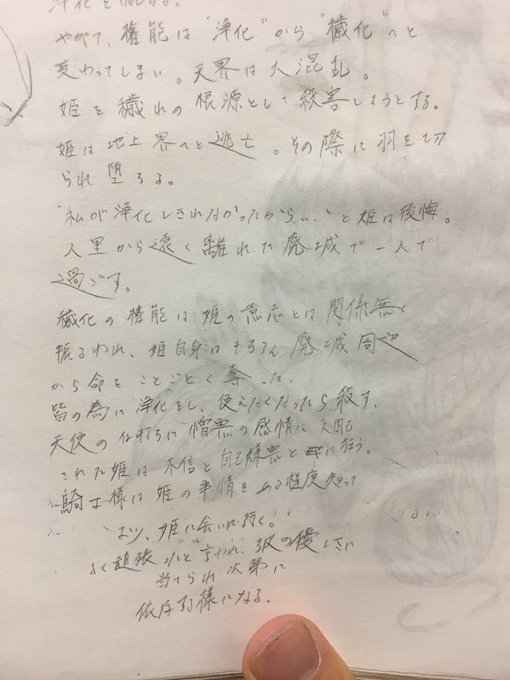 浄化を
やがて、権能は"浄化"から"穢化"へと
変わってしまい。天界は大混乱。
姫を穢れの根源として殺害しようとする。
姫は地上界へと逃亡。その際に羽を切
られ堕ちる。
"私が浄化しきれなかったから…"と姫は後悔。
人里から遠く離れた廃城で一人で
過ごす。
穢化の権能は姫の意志とは関係無く
振るわれ、姫自身はもちろん廃城周辺
から命をことごとく奪った。
皆の為に浄化をし、使えなくなったら殺す、
天使の仕打ちに憎悪の感情に支配
された姫は不信と自己嫌悪と に狂う。
騎士様は姫の事情をある程度知って
おり、姫に会いに行く。
よく頑張ったと言われ、彼の優しさに
当てられ次第に
依存する様になる。